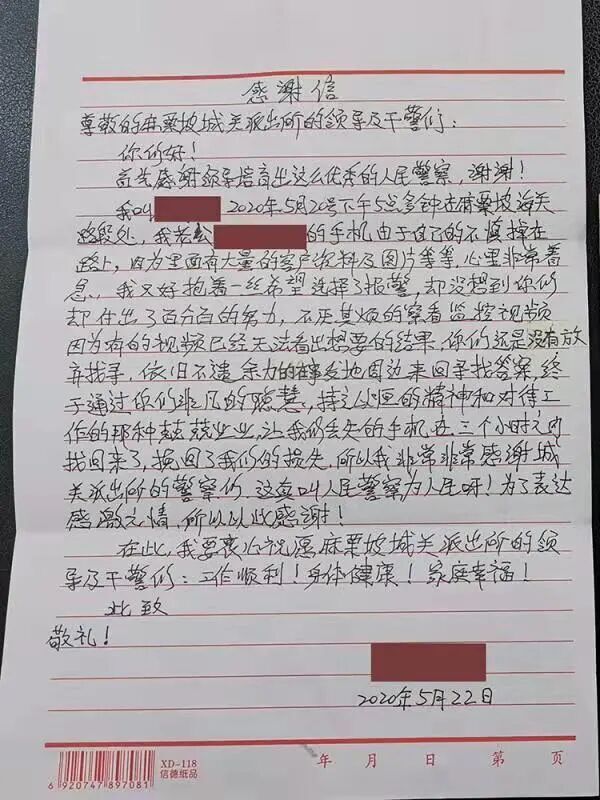 感谢信
尊敬的麻栗坡城关派出所的领导及干警们：
你们好！
首先感谢领导培育出这么优秀的人民警察，谢谢！
我叫 2020年5月20号下午5点多钟在麻栗坡海关
路段处，我老公 的手机由于自己的不慎掉在
路上，因为里面有大量的客户资料及图片等等，心里非常着
急、我又好抱着一丝希望选择了报警，却没想到你们
却付出了百分百的努力，不厌其烦的察看监控视频
因为有的视频已经无法看出想要的结果，你们还是没有放
弃找寻，依旧不遗余力的 地周边来回寻找答案，终
于通过你们非凡的聪慧，持之以恒的精神和对待工
作的那种兢兢业业，让我们丢失的手机在三个小时之内
找回来了，挽回了我们的损失，所以我非常非常感谢城
关派出所的警察们，这真叫人民警察为人民呀！为了表达
感激之情，所以以此感谢！
在此，我要衷心祝愿麻栗坡城关派出所的领
导及干警们：工作顺利！身体健康！家庭幸福！
此致
敬礼！
2020年5月22日
XD-118
信德纸品
6 920747 897081
年 月 日 第 页